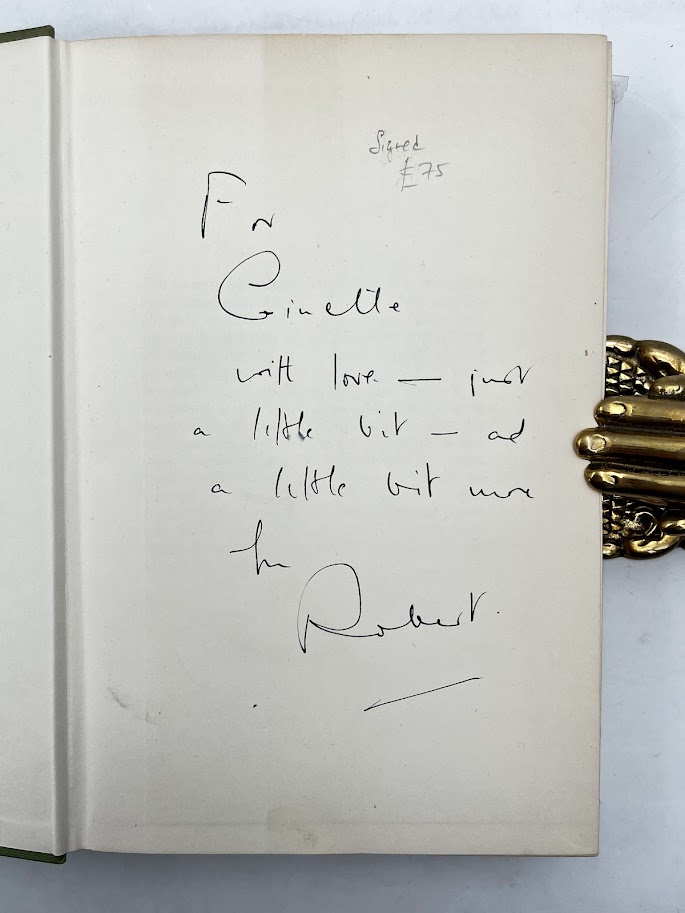 Signed
£75
For
Ginette
with love — just
a little bit — and
a little bit more
from
Robert.